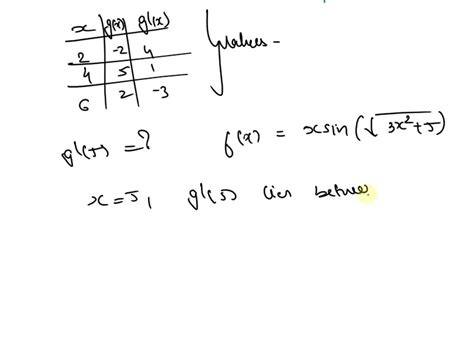 x g(x) g'(x)
2 -2 4
4 5 1
6 2 -3
values -
g'(5) = ? f(x) = x sin(√3x²+5)
x = 5, g'(5) lies betwee